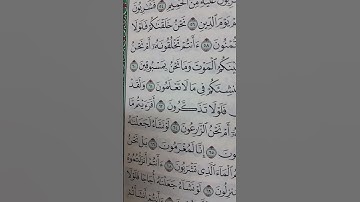 عَلَيْهِ مِنَ الْحَمِيمِ ٥٤ فَشَٰرِبُونَ
يَوْمَ الدِّينِ ٥٦ نَحْنُ خَلَقْنَٰكُمْ فَلَوْلَا
تُمْنُونَ ٥٨ ءَأَنتُمْ تَخْلُقُونَهُۥٓ أَمْ نَحْنُ
الْمَوْتَ وَمَا نَحْنُ بِمَسْبُوقِينَ ٦٠
فِى مَا لَا تَعْلَمُونَ ٦١ وَلَقَدْ
فَلَوْلَا تَذَكَّرُونَ ٦٢ أَفَرَءَيْتُم مَّا
أَمْ نَحْنُ الزَّٰرِعُونَ ٦٤ لَوْ نَشَآءُ لَجَعَلْنَٰهُ
٦٥ إِنَّا لَمُغْرَمُونَ ٦٦ بَلْ نَحْنُ
الْمَآءَ الَّذِى تَشْرَبُونَ ٦٨ ءَأَنتُمْ أَنزَلْتُمُوهُ
٦٩ لَوْ نَشَآءُ جَعَلْنَٰهُ أُجَاجًا فَلَوْلَا
ءَأَنتُمْ أَنشَأْتُمْ